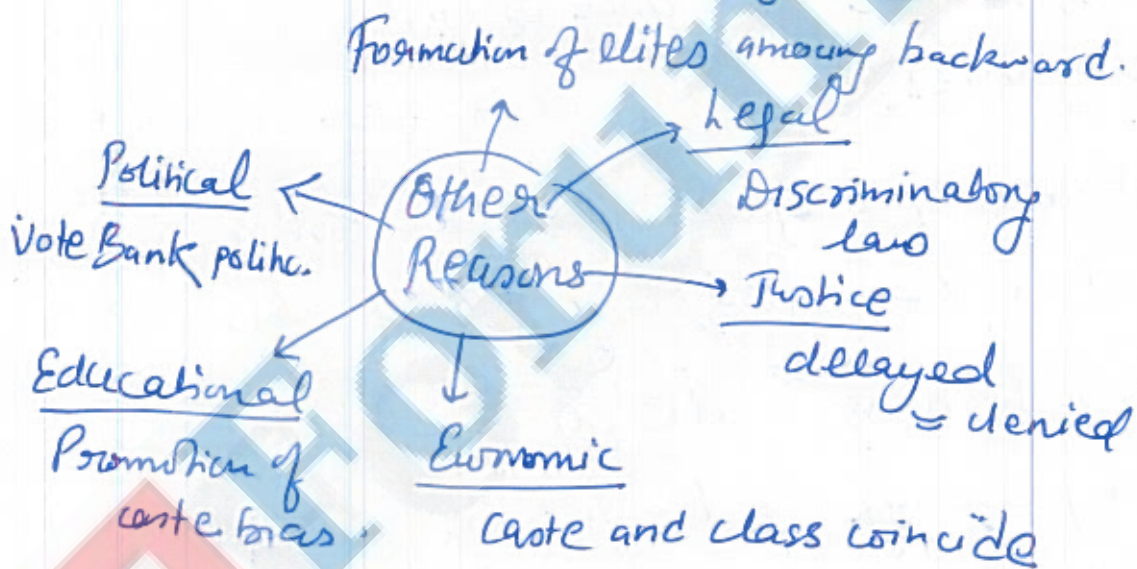 Formation of elites among backward.
Legal
Discriminatory
laws
Political
Vote Bank politic.
Other
Reasons
Justice
delayed
= denied
Educational
Promotion of
caste bias.
Economic
Caste and class coincide
Forum